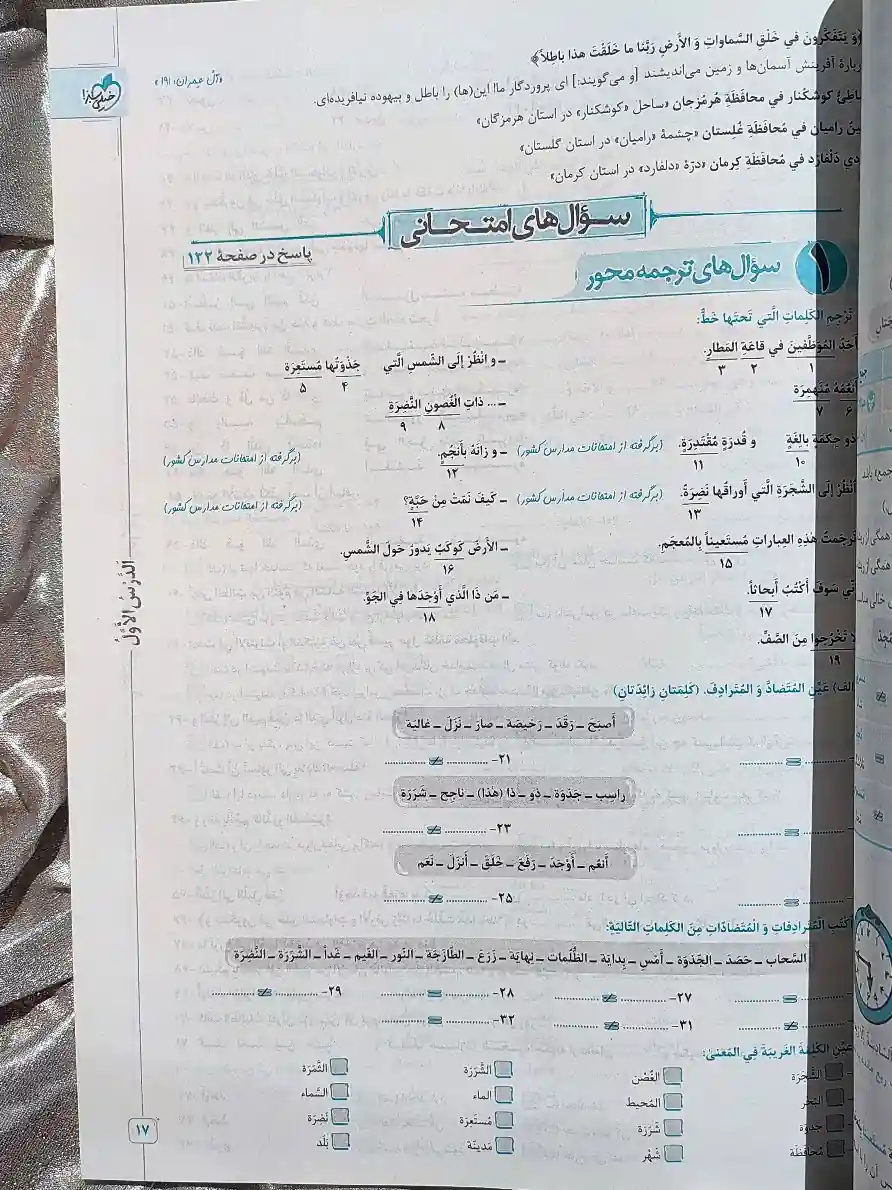 ﴿وَ يَتَفَكَّرُونَ في خَلْقِ السَّماواتِ وَ الأَرضِ رَبَّنا ما خَلَقْتَ هذا باطِلاً﴾
«آل عِمران: ۱۹۱»
آفرینش آسمان‌ها و زمین می‌اندیشند [و می‌گویند:] ای پروردگار ما! این(ها) را باطل و بیهوده نیافریده‌ای.
کوشکنار في محافَظَةِ هُرمُزجان «ساحل «کوشکنار» در استان هرمزگان»
رامیان في مُحافَظَةِ غُلِستان «چشمهٔ «رامیان» در استان گلستان»
دَلفارَد في مُحافَظَةِ کِرمان «درّهٔ «دلفارد» در استان کرمان»
خیلی سبز
سؤال‌های امتحانی
پاسخ در صفحهٔ ۱۲۲
۱ سؤال‌های ترجمه‌محور
تَرْجِمِ الکَلِماتِ الَّتي تَحتَها خَطٌّ:
أَحَدُ المُوَظَّفينَ في قاعَةِ المَطارِ. ـ و انْظُرْ إلَی الشَّمسِ الَّتي جَذْوَتُها مُستَعِرَة
۱ ۲ ۳ ۴ ۵
أَنعُمُهُ مُنهَمِرَة ـ ... ذاتِ الْغُصونِ النَّضِرَة
۶ ۷ ۸ ۹
ذو حِکمَةٍ بالِغَةٍ و قُدرَةٍ مُقتَدِرَةٍ. (برگرفته از امتحانات مدارس کشور) ـ و زانَهُ بِأَنجُمٍ. (برگرفته از امتحانات مدارس کشور)
۱۰ ۱۱ ۱۲
اُنْظُرْ إلَی الشَّجَرَةِ الَّتي أَوراقُها نَضِرَةٌ. (برگرفته از امتحانات مدارس کشور) ـ کَیفَ نَمَتْ مِنْ حَبَّةٍ؟ (برگرفته از امتحانات مدارس کشور)
۱۳ ۱۴
تَرجَمتُ هٰذِهِ العِباراتِ مُستَعیناً بِالمُعجَمِ. ـ الأَرضُ کَوکَبٌ یَدورُ حَولَ الشَّمسِ.
۱۵ ۱۶
سَوفَ أَکتُبُ أَبحاثاً. ـ مَن ذَا الَّذي أَوجَدَها فِي الجَوِّ.
۱۷ ۱۸
لا تَخْرُجوا مِنَ الصَّفِّ.
۱۹
الف) عَیِّنِ المُتَضادَّ وَ المُتَرادِفَ. (کَلِمَتانِ زائِدَتانِ)
أَصبَحَ ـ رَقَدَ ـ رَخیصَة ـ صارَ ـ نَزَلَ ـ غالیَة
............ = ............ ۲۱- ............ ≠ ............
راسِب ـ جَذوَة ـ ذو ـ ذا (هٰذا) ـ ناجِح ـ شَرَرَة
............ = ............ ۲۳- ............ ≠ ............
أَنعُم ـ أَوْجَدَ ـ رَفَعَ ـ خَلَقَ ـ أَنزَلَ ـ نَعَم
............ = ............ ۲۵- ............ ≠ ............
اُکتُبِ المُتَرادِفاتِ وَ المُتَضادّاتِ مِنَ الکَلِماتِ التّالیَةِ:
السَّحاب ـ حَصَدَ ـ الجَذوَة ـ أَمسِ ـ بِدایَة ـ الظُّلُمات ـ نِهایَة ـ زَرَعَ ـ الطّازَجَة ـ النّور ـ الغَیم ـ غَداً ـ الشَّرَرَة ـ النَّضِرَة
............ = ............ ۲۷- ............ ≠ ............ ۲۸- ............ = ............ ۲۹- ............ ≠ ............
............ ≠ ............ ۳۱- ............ ≠ ............ ۳۲- ............ = ............
عَیِّنِ الکَلِمَةَ الغَریبَةَ فِي المَعنیٰ:
الشَّجَرَة الغُصْن الشَّرَرَة الثَّمَرَة
البَحْر المُحیط الماء السَّماء
جَذوَة شَرَرَة مُستَعِرَة نَضِرَة
مُحافَظَة شَهْر مَدینَة بَلَد
الدَّرْسُ الأَوَّلُ
۱۷